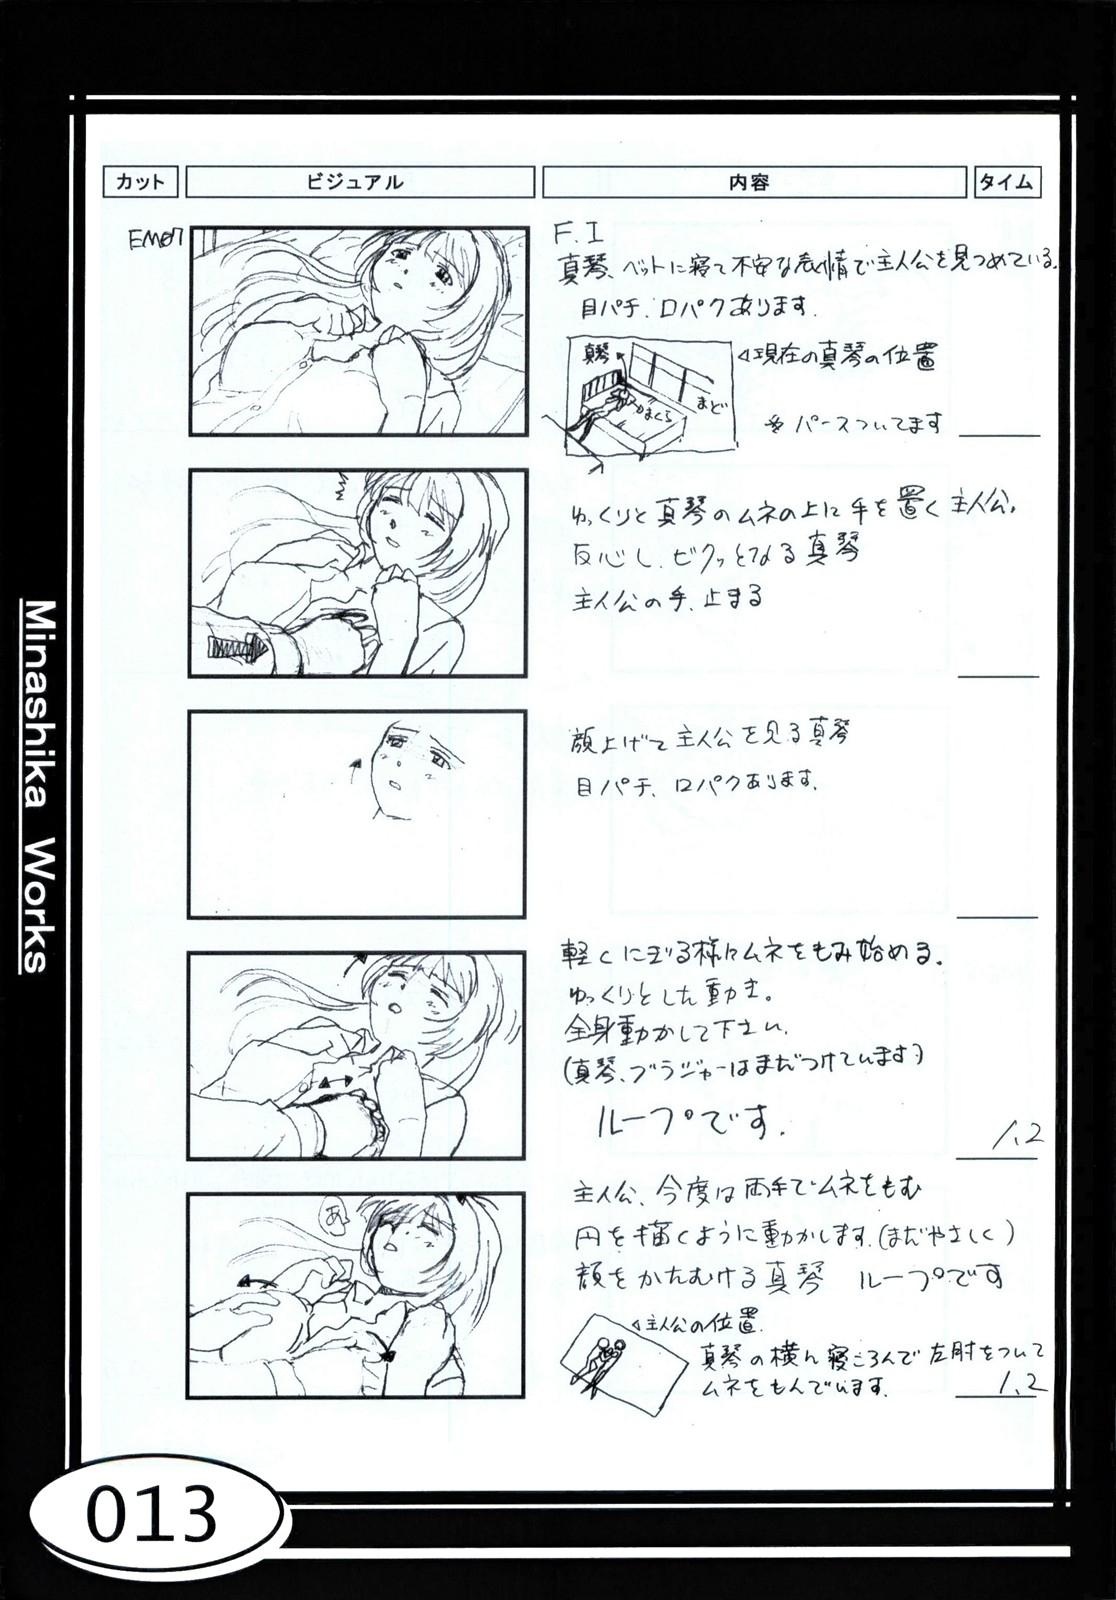 カット
ビジュアル
内容
タイム
EM07
F.I
真琴、ベットに寝て不安な表情で主人公を見つめている。
目パチ、口パクあります。
真琴
◁現在の真琴の位置
まくら
まど
※パースついてます
ゆっくりと真琴のムネの上に手を置く主人公。
反心し、ビクッとなる真琴
主人公の手、止まる
顔上げて主人公を見る真琴
目パチ、口パクあります。
軽くにぎる様にムネをもみ始める。
ゆっくりとした動き。
全身動かして下さい。
(真琴、ブラジャーはまだつけています)
ループです。
1.2
あ
主人公、今度は両手でムネをもむ
円を描くように動かします。(まだやさしく)
顔をかたむける真琴 ループです
◁主人公の位置。
真琴の横に寝ころんで左肘をついて
ムネをもんでいます。
1.2
Minashika Works
013